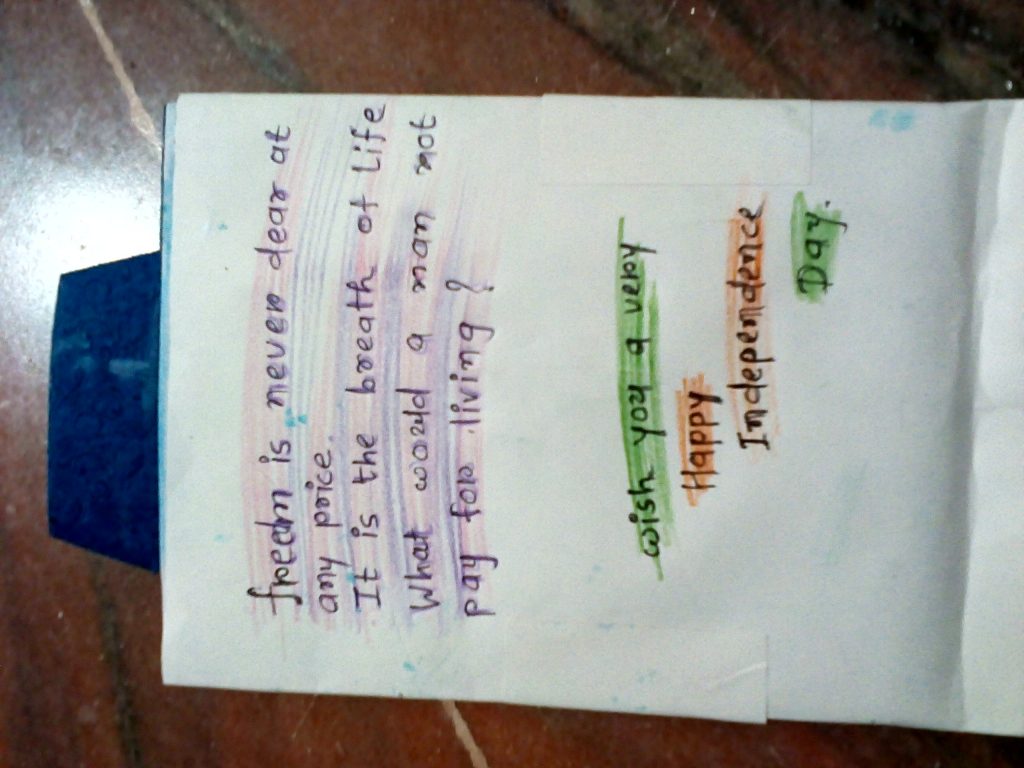 freedm is never dear at
any price.
It is the breath of Life
What would a man not
pay for living?
wish you a very
Happy
Independence
Day.